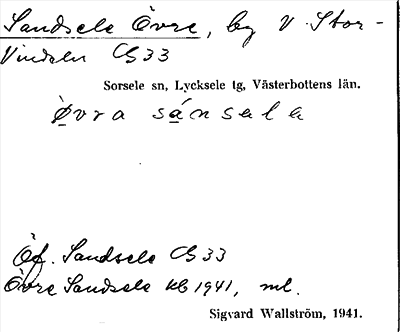 Sandsele Övre, by V. Stor-
Vindeln C633
Sorsele sn, Lycksele tg, Västerbottens län.
Øvra sánsela
Öf. Sandsele C633
Övre Sandsele kb 1941, ml.
Sigvard Wallström, 1941.